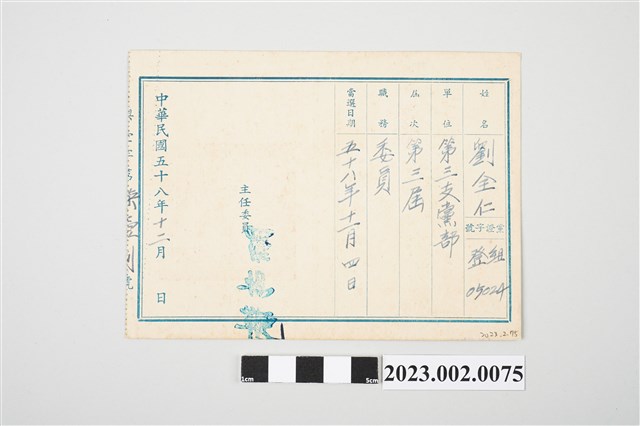 姓名 劉全仁
黨證字號 登組 05024
單位 第三支黨部
屆次 第三屆
職務 委員
當選日期 五十八年十二月四日
主任委員
中華民國五十八年十二月 日
號
2023.2.75
1cm 5cm
2023.002.0075